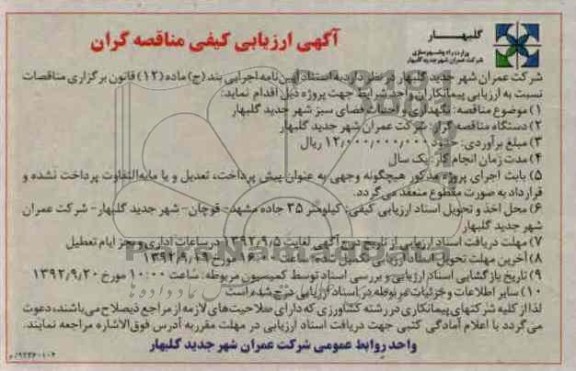 گلبهار
وزارت راه و شهرسازی
شرکت عمران شهر جدید گلبهار
آگهی ارزیابی کیفی مناقصه گران
شرکت عمران شهر جدید گلبهار در نظر دارد به استناد آیین نامه اجرایی بند (ج) ماده (۱۲) قانون برگزاری مناقصات
نسبت به ارزیابی پیمانکاران واجد شرایط جهت پروژه ذیل اقدام نماید:
۱) موضوع مناقصه: نگهداری و احداث فضای سبز شهر جدید گلبهار
۲) دستگاه مناقصه گزار: شرکت عمران شهر جدید گلبهار
۳) مبلغ برآوردی: حدود ۱۲,۰۰۰,۰۰۰,۰۰۰ ریال
۴) مدت زمان انجام کار: یک سال
۵) بابت اجرای پروژه مذکور هیچگونه وجهی به عنوان پیش پرداخت، تعدیل و یا مابه التفاوت پرداخت نشده و
قرارداد به صورت مقطوع منعقد می گردد.
۶) محل اخذ و تحویل اسناد ارزیابی کیفی: کیلومتر ۳۵ جاده مشهد- قوچان- شهر جدید گلبهار- شرکت عمران
شهر جدید گلبهار
۷) مهلت دریافت اسناد ارزیابی از تاریخ درج آگهی لغایت ۱۳۹۲/۹/۵ در ساعات اداری و بجز ایام تعطیل
۸) آخرین مهلت تحویل اسناد ارزیابی تکمیل شده ساعت مورخ ۱۳۹۲/۹/۱۹
۹) تاریخ بازگشایی اسناد ارزیابی و بررسی اسناد توسط کمیسیون مربوطه: ساعت ۱۰:۰۰ مورخ ۱۳۹۲/۹/۲۰
۱۰) سایر اطلاعات و جزئیات مربوطه در اسناد ارزیابی درج شده است
لذا از کلیه شرکتهای پیمانکاری در رشته کشاورزی که دارای صلاحیت های لازمه از مراجع ذیصلاح می باشند، دعوت
می گردد با اعلام آمادگی کتبی جهت دریافت اسناد ارزیابی در مهلت مقرر به آدرس فوق الاشاره مراجعه نمایند.
واحد روابط عمومی شرکت عمران شهر جدید گلبهار